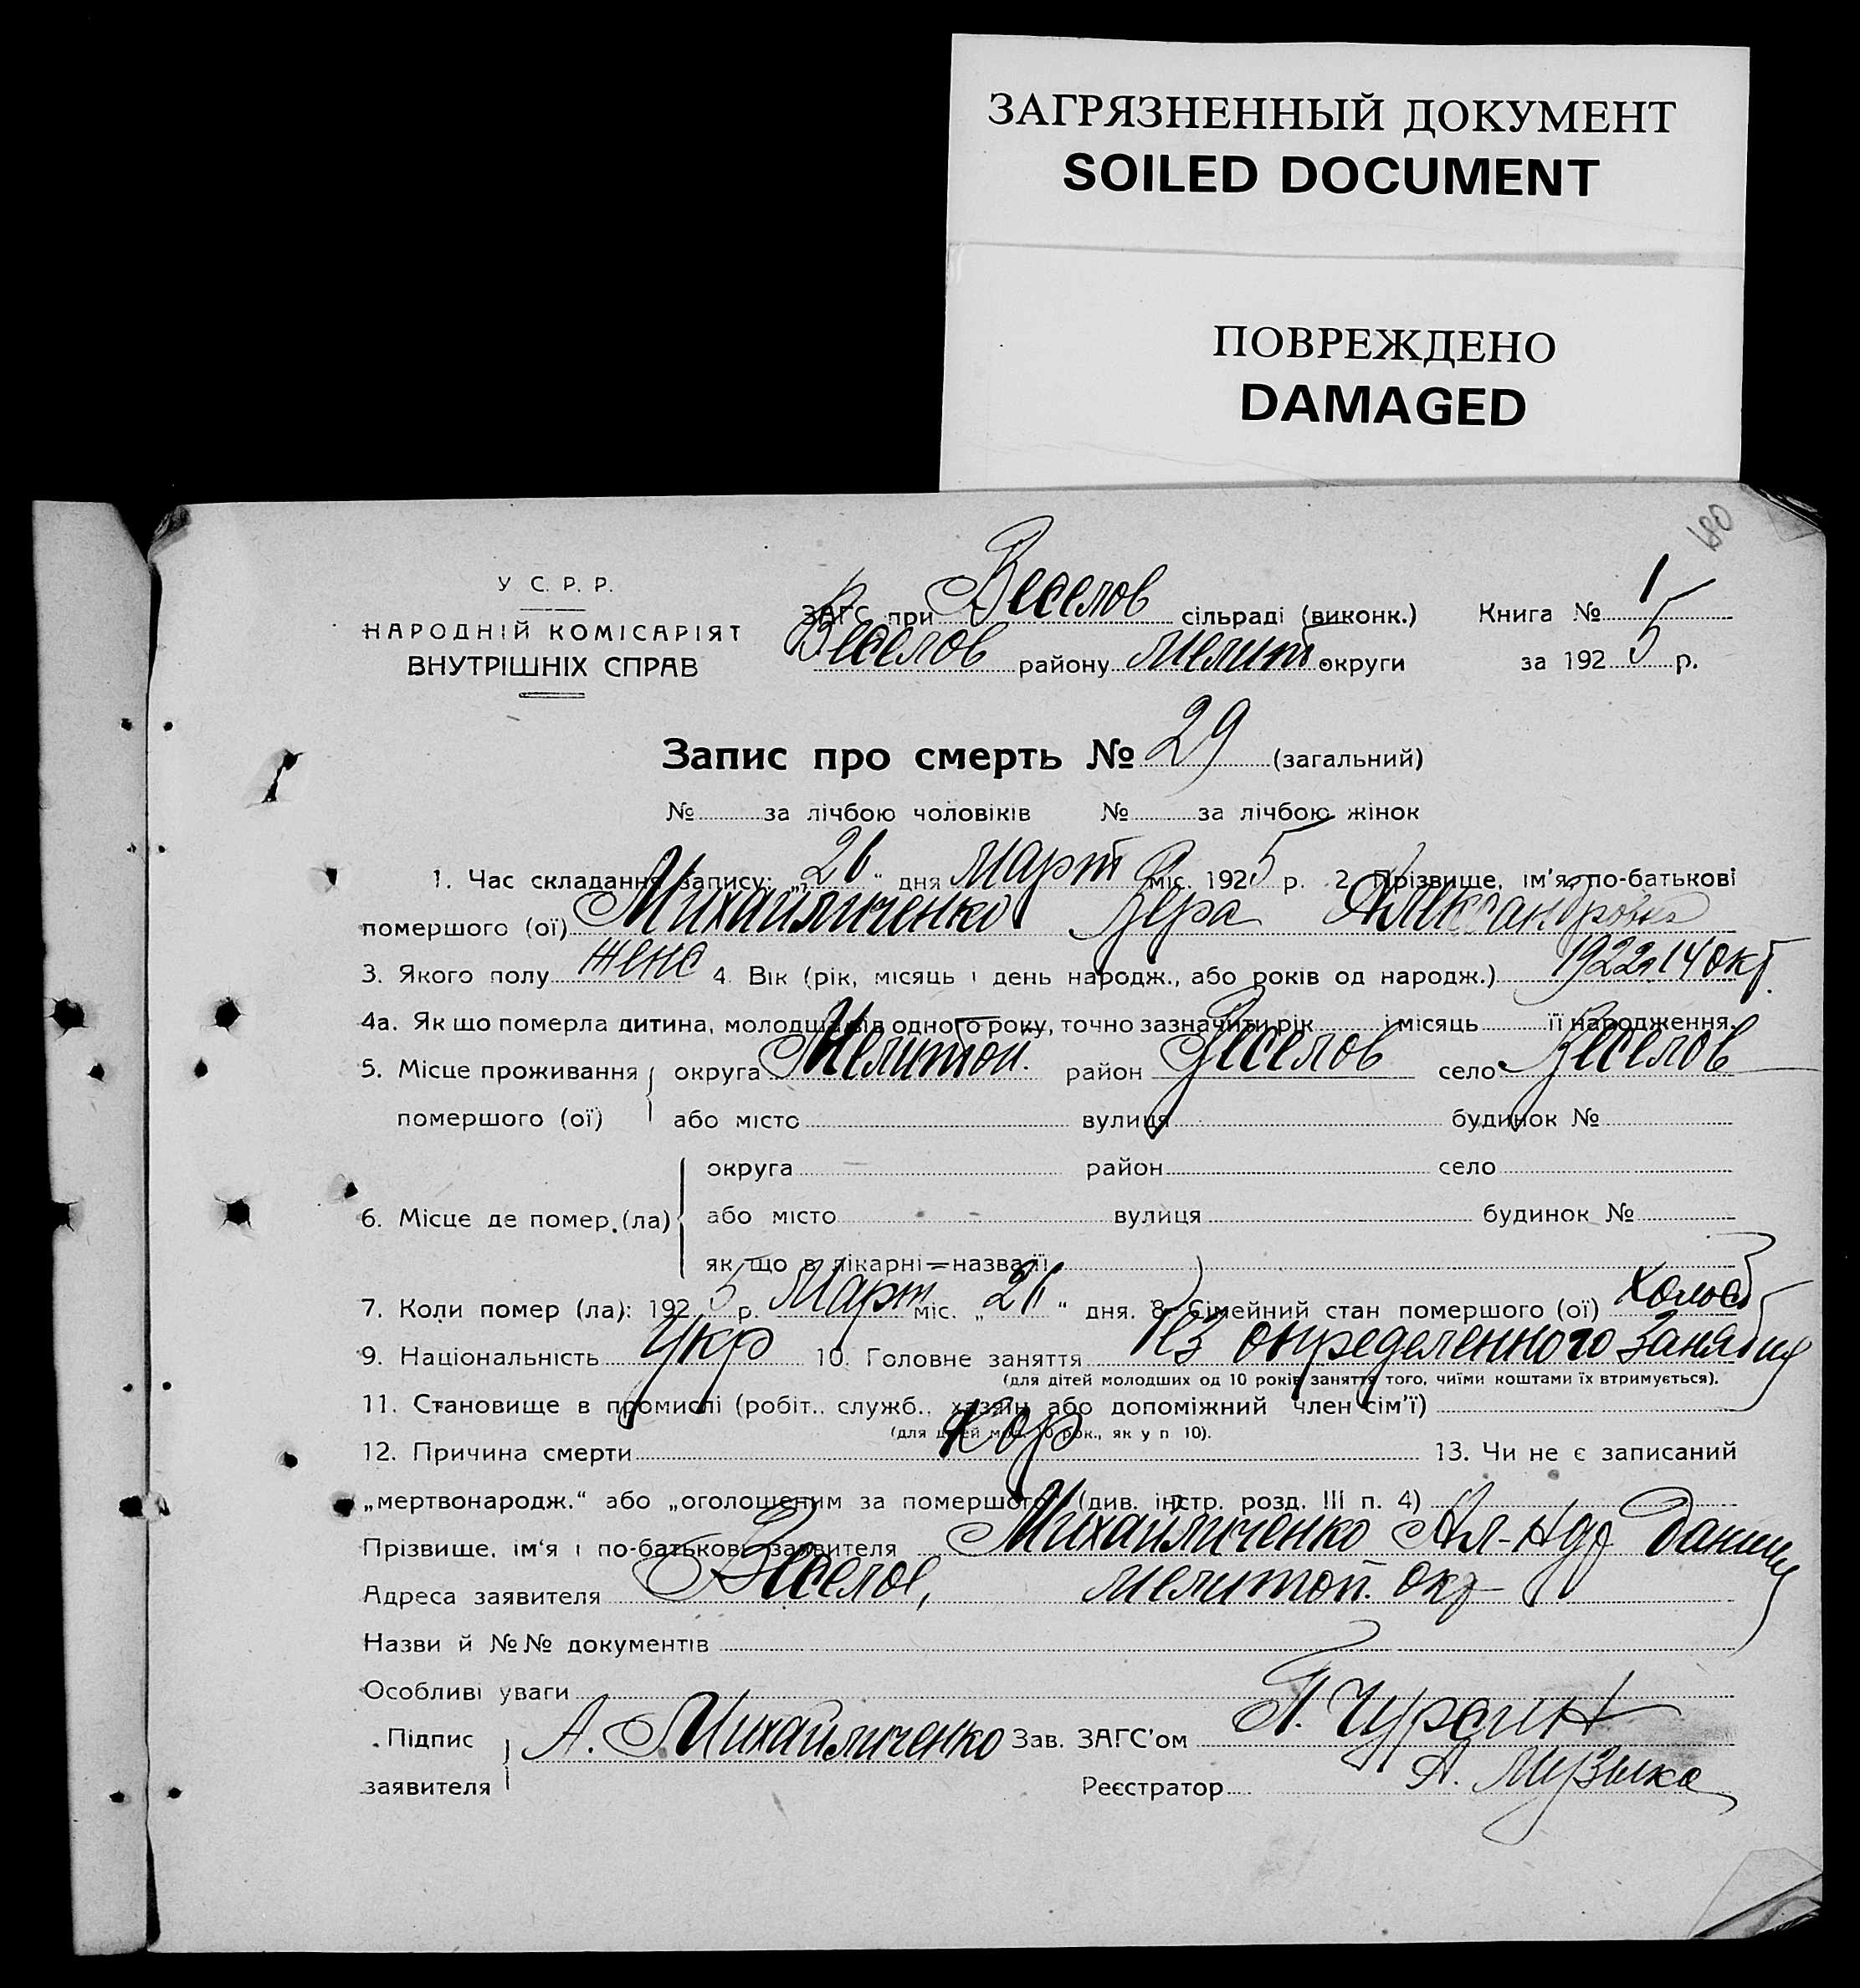 ЗАГРЯЗНЕННЫЙ ДОКУМЕНТ
SOILED DOCUMENT
ПОВРЕЖДЕНО
DAMAGED
180
У С. Р. Р.
НАРОДНІЙ КОМІСАРІЯТ
ВНУТРІШНІХ СПРАВ
ЗАГС при Веселов сільраді (виконк.) Книга № 1
Веселов району Мелит округи за 1925 р.
Запис про смерть № 29 (загальний)
№ за лічбою чоловіків № за лічбою жінок
1. Час складання запису: „26“ дня Март міс. 1925 р. 2. Прізвище, ім'я, по-батькові
помершого (ої) Михайличенко Вера Александровна
3. Якого полу женс 4. Вік (рік, місяць і день народж., або років од народж.) 1922 14 окт.
4а. Як що померла дитина, молодша від одного року, точно зазначити рік і місяць її народження.
5. Місце проживання округа Мелитоп. район Веселов село Веселов
помершого (ої) або місто вулиця будинок №
округа район село
6. Місце де помер (ла) або місто вулиця будинок №
як що в лікарні—назва її
7. Коли помер (ла): 1925 р. Март міс. „26“ дня. 8. Сімейний стан помершого (ої) холост
9. Національність Укр 10. Головне заняття без определенного занятия
(для дітей молодших од 10 років заняття того, чиїми коштами їх втримується).
11. Становище в промислі (робіт., служб., хазяїн або допоміжний член сім'ї)
(для дітей мол. 10 рок., як у п 10).
12. Причина смерти Кор 13. Чи не є записаний
„мертвонародж.“ або „оголошеним за помершого“ (див. інстр. розд. III п. 4)
Прізвище, ім'я і по-батькові заявителя Михайличенко Ал-ндр Данил
Адреса заявителя Веселое, Мелитоп. окр
Назви й №№ документів
Особливі уваги
Підпис А. Михайличенко Зав. ЗАГС'ом П. Чурсин
заявителя Реєстратор А. Музыка